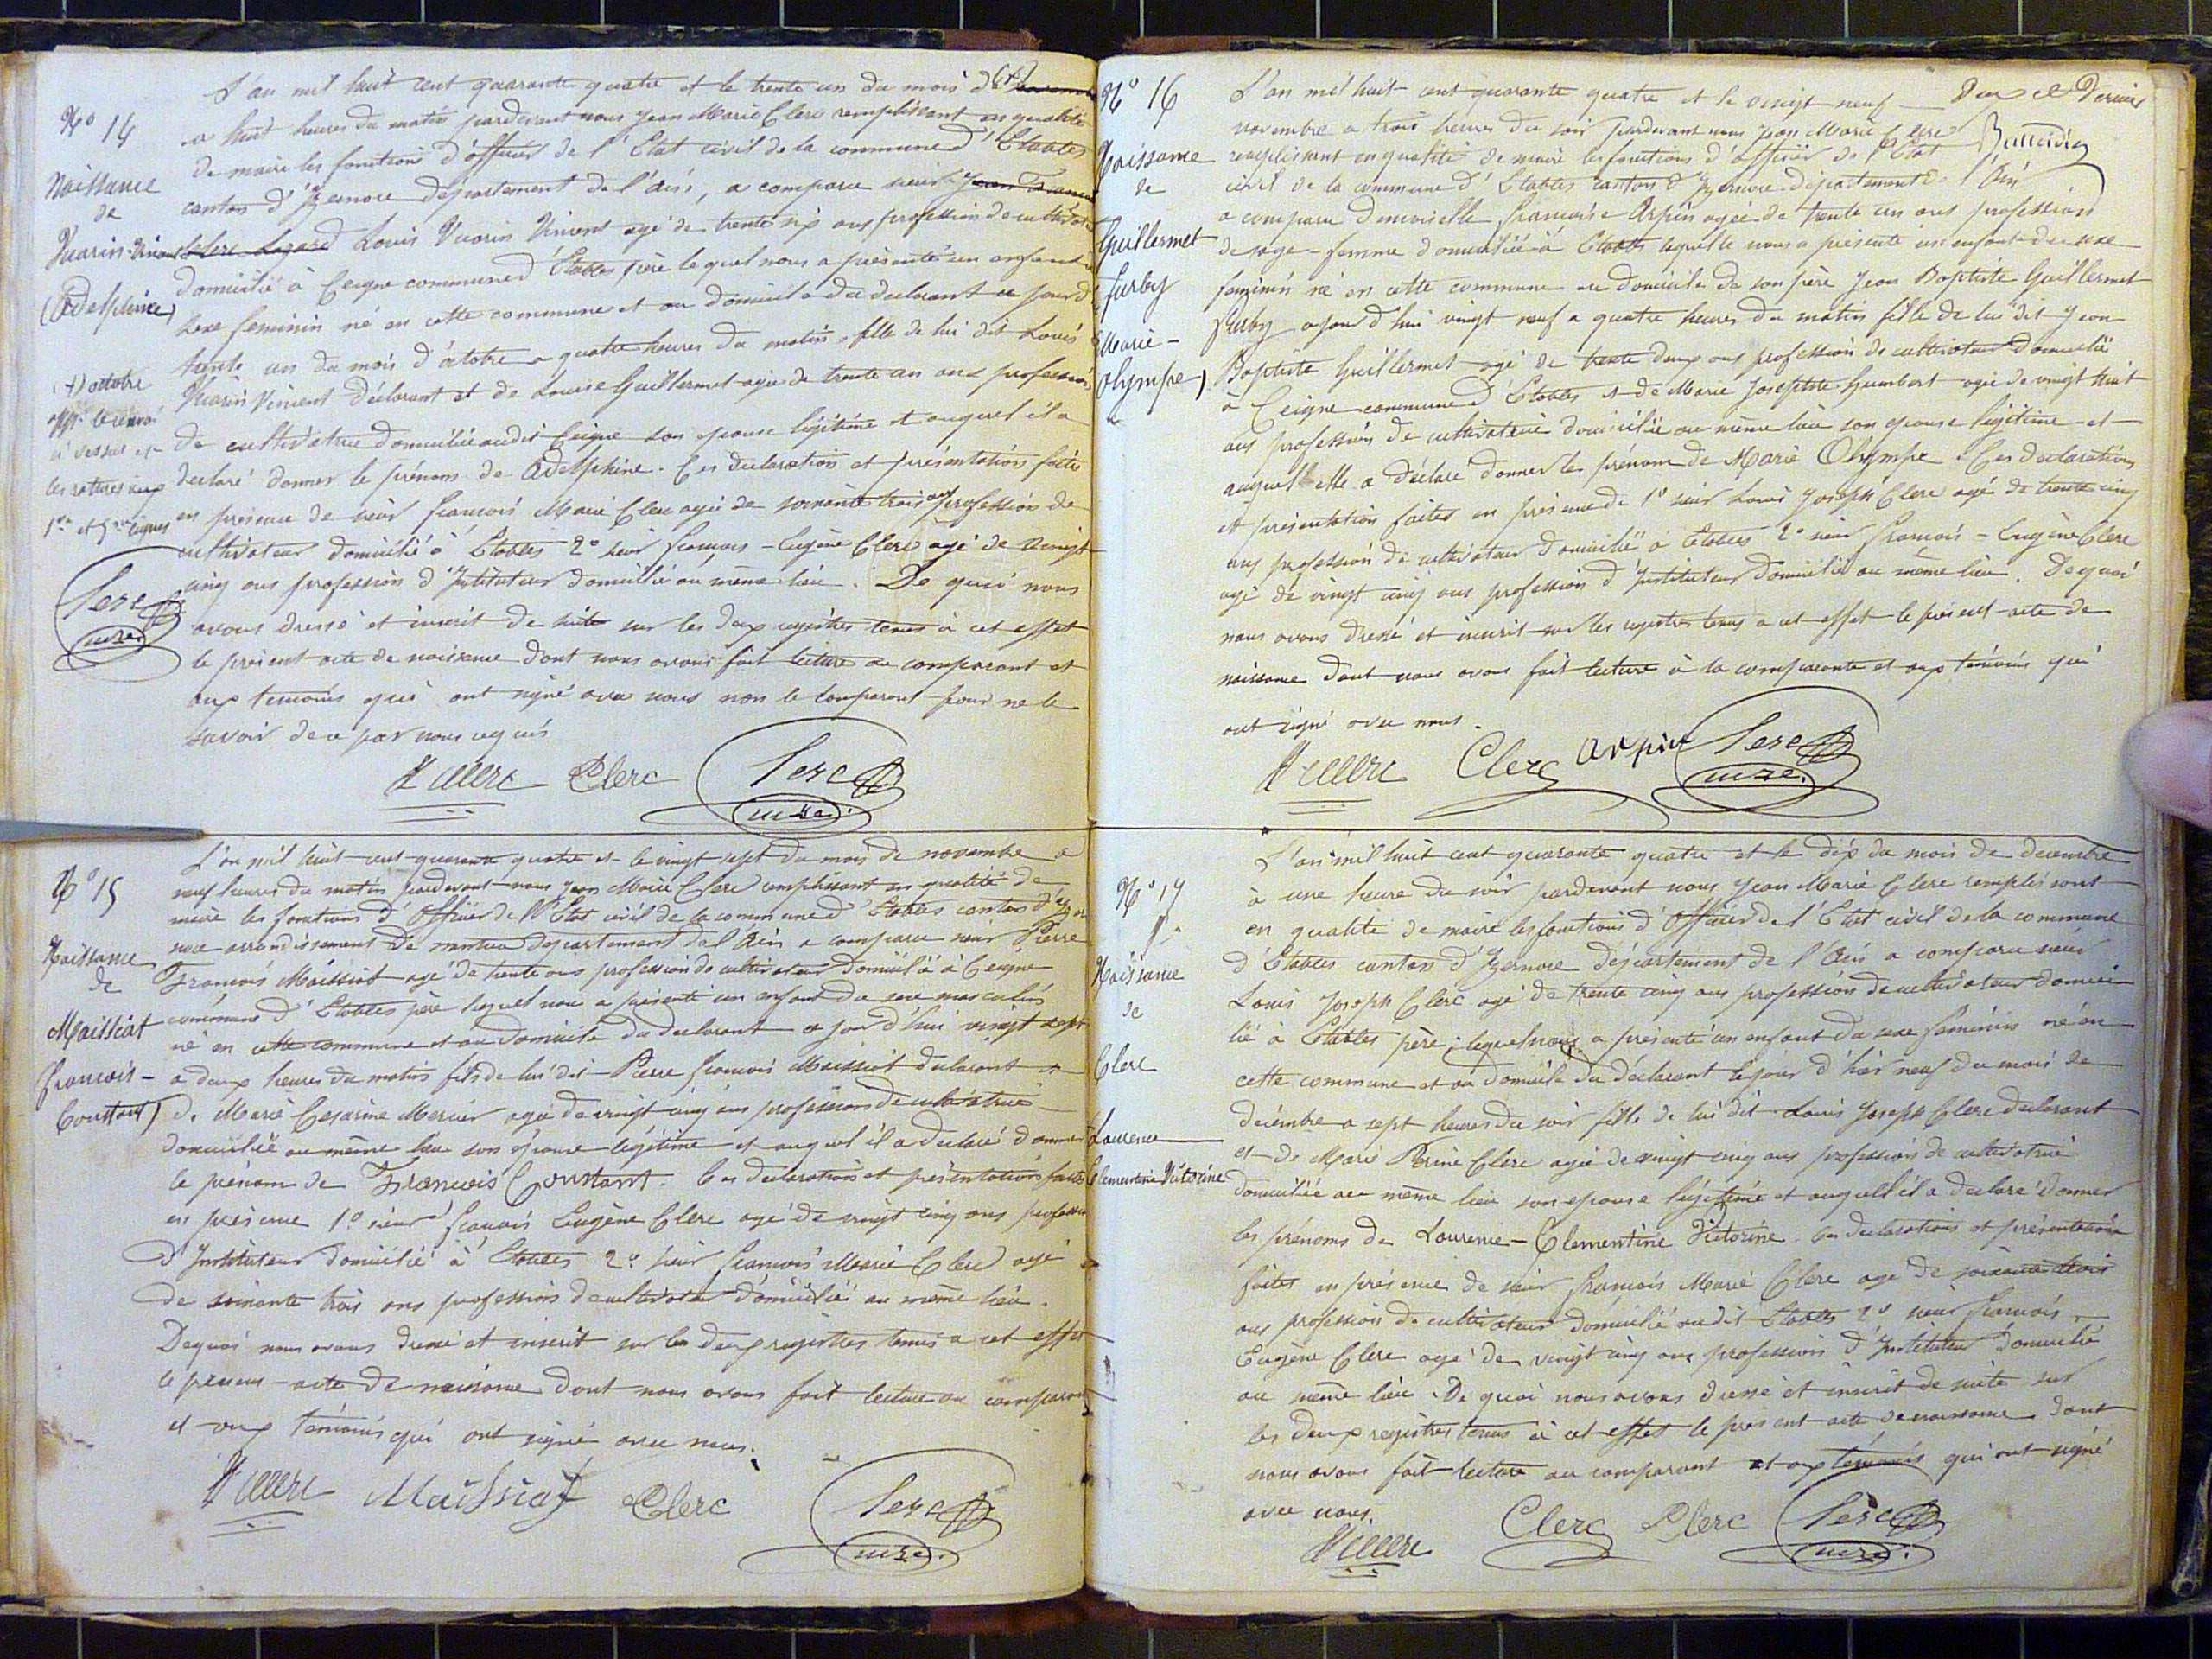 L'an mil huit cent quarante quatre et le trente un du mois d (+)
N° 14
a huit heures du matin pardevant nous Jean Marie Clerc remplissant en qualité
de maire les fonctions d'officier de l'Etat civil de la commune d'Etables
Naissance
de
canton d'Izernore département de l'Ain, a comparu sieur Jean
Vuarin-Vincent
Clerc Lazard Louis Vuarin Vincent agé de trente six ans profession de cultivateur
(Adelphine)
domicilié à Ceigne commune d'Etables père lequel nous a présenté un enfant
sexe feminin né en cette commune et au domicile du declarant ce jour d
trente un du mois d'octobre a quatre heures du matin, fille de lui dit Louis
(+) octobre
Vuarin Vincent déclarant et de Louise Guillermet agée de trente un ans profession
app. le renvoi
ci dessus et
de cultivatrice domiciliée audit Ceigne son epouse légitime et auquel il a
les ratures aux
déclaré donner le prénom de Adelphine. Ces declaration et présentation faites
1re et 5me lignes
en présence de sieur francois Marie Clerc agé de soixante trois ans profession de
cultivateur domicilié à Etables 2° sieur francois-Eugène Clerc agé de vingt
cinq ans profession d'Instituteur domicilié au même lieu. De quoi nous
avons dressé et inscrit de suite sur les deux registres tenus à cet effet
le présent acte de naissance dont nous avons fait lecture au comparant et
aux temoins qui ont signé avec nous non le comparant pour ne le
savoir de ce par nous requis
Clerc Clerc Clerc
maire
N° 15
L'an mil huit cent quarante quatre et le vingt sept du mois de novembre a
neuf heures du matin pardevant nous Jean Marie Clerc remplissant en qualité de
maire les fonctions d'Officier de l'Etat civil de la commune d'Etables canton d'Izer
nore arrondissement de nantua département de l'Ain a comparu sieur Pierre
Naissance
de
François Maissiat agé de trente ans profession de cultivateur domicilié à Ceigne
commune d'Etables père lequel nous a présenté un enfant du sexe masculin
Maissiat
né en cette commune et au domicile du declarant ce jour d'hui vingt sept
francois-
a deux heures du matin fils de lui dit Pierre francois Maissiat declarant et
Constant)
de Marie Cesarine Mercier agée de vingt cinq ans profession de cultivatrice
domiciliée au même lieu son épouse légitime et auquel il a declaré donner
le prénom de François Constant. Ces declaration et présentation faites
en présence 1° sieur francois Eugène Clerc agé de vingt cinq ans profession
d'Instituteur domicilié à Etables 2° sieur francois Marie Clerc agé
de soixante trois ans profession de cultivateur domicilié au même lieu.
Dequoi nous avons dressé et inscrit sur les deux registres tenus a cet effet
le présent acte de naissance dont nous avons fait lecture au comparant
et aux témoins qui ont signé avec nous.
Clerc Maissiat Clerc Clerc
maire
Deux et Dernier
N° 16
L'an mil huit cent quarante quatre et le vingt neuf
novembre a trois heures du soir pardevant nous Jean Marie Clerc
Naissance
de
remplissant en qualité de maire les fonctions d'officier de l'Etat
civil de la commune d'Etables canton d'Izernore département de l'Ain
a comparu demoiselle francoise Arpin agée de trente un ans profession
Guillermet
de sage-femme domiciliée à Etables laquelle nous a présenté un enfant du sexe
furby
feminin né en cette commune au domicile de son père Jean Baptiste Guillermet
furby ajourd'hui vingt neuf a quatre heures du matin fille de lui dit Jean
Marie-
olympe)
Baptiste Guillermet agé de trente deux ans profession de cultivateur domicilié
à Ceigne commune d'Etables et de Marie Josephte Humbert agée de vingt huit
ans profession de cultivatrice domiciliée au même lieu son épouse légitime et
auquel elle a déclaré donner les prénom de Marie Olympe. Ces declaration
et présentation faites en présence de 1° sieur Louis Joseph Clerc agé de trente cinq
ans profession de cultivateur domicilié à Etables 2° sieur francois-Eugène Clerc
agé de vingt cinq ans profession d'Instituteur domicilié au même lieu. Dequoi
nous avons dressé et inscrit sur les registres tenus a cet effet le présent acte de
naissance dont nous avons fait lecture à la comparante et aux témoins qui
ont signé avec nous.
Clerc Clerc arpin Clerc
maire.
N° 17
L'an mil huit cent quarante quatre et le dix du mois de decembre
à une heure du soir pardevant nous Jean Marie Clerc remplissant
en qualité de maire les fonctions d'Officier de l'Etat civil de la commune
Naissance
de
d'Etables canton d'Izernore département de l'Ain a comparu sieur
Louis Joseph Clerc agé de trente cinq ans profession de cultivateur domici
lié à Etables père; lequel nous a présenté un enfant du sexe feminin né en
Clerc
cette commune et au domicile du déclarant le jour d'hier neuf du mois de
decembre a sept heures du soir fille de lui dit Louis Joseph Clerc declarant
Laurence
et de Marie Perine Clerc agée de vingt cinq ans profession de cultivatrice
Clementine Victorine
domiciliée au même lieu son epouse légitime et auquel il a declaré donner
les prénoms de Laurence-Clementine Victorine. Ces declaration et présentation
faites en présence de sieur francois Marie Clerc agé de soixante trois
ans profession de cultivateur domicilié audit Etables 2° sieur francois
Eugène Clerc agé de vingt cinq ans profession d'Instituteur domicilié
au même lieu. De quoi nous avons dressé et inscrit de suite sur
les deux registres tenus à cet effet le present acte de naissance dont
nous avons fait lecture au comparant et aux témoins qui ont signé
avec nous.
Clerc Clerc Clerc
maire.